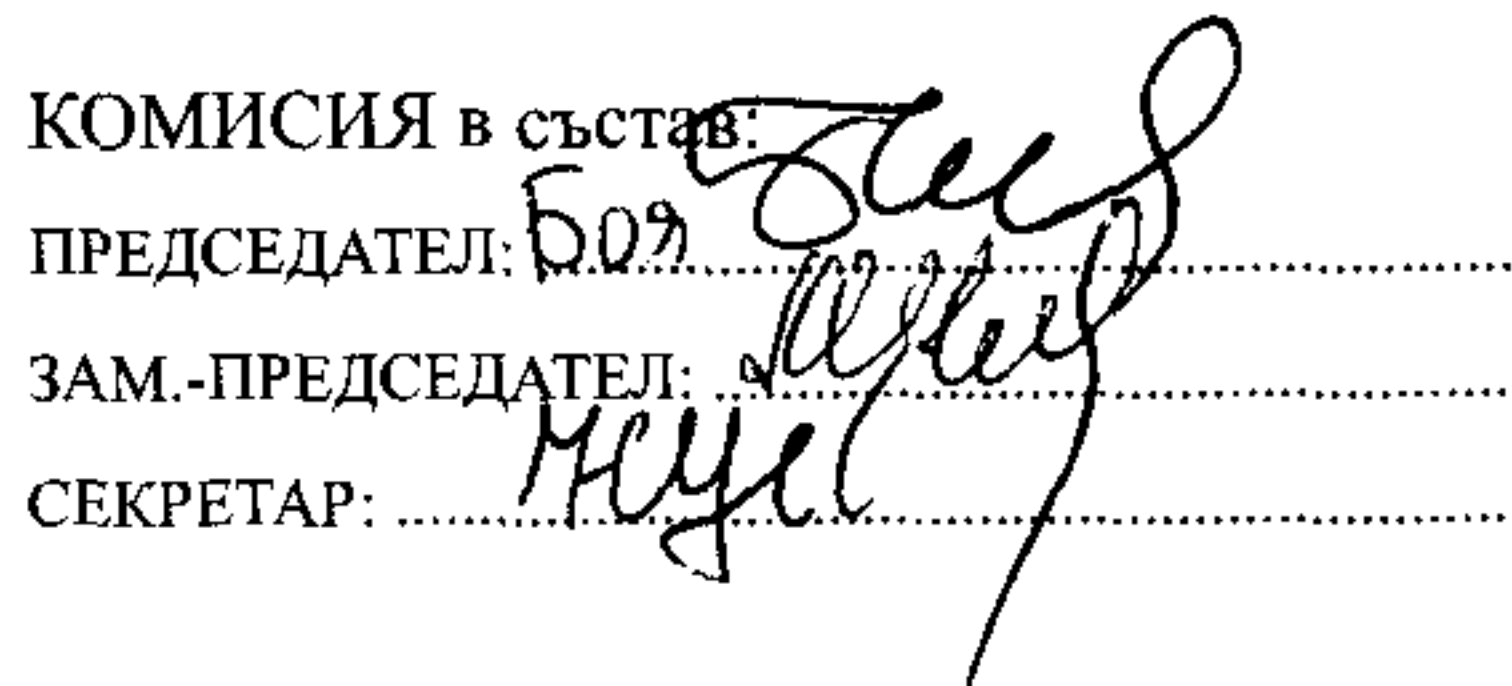 КОМИСИЯ в състав:
ПРЕДСЕДАТЕЛ: Боя
ЗАМ.-ПРЕДСЕДАТЕЛ:
СЕКРЕТАР: